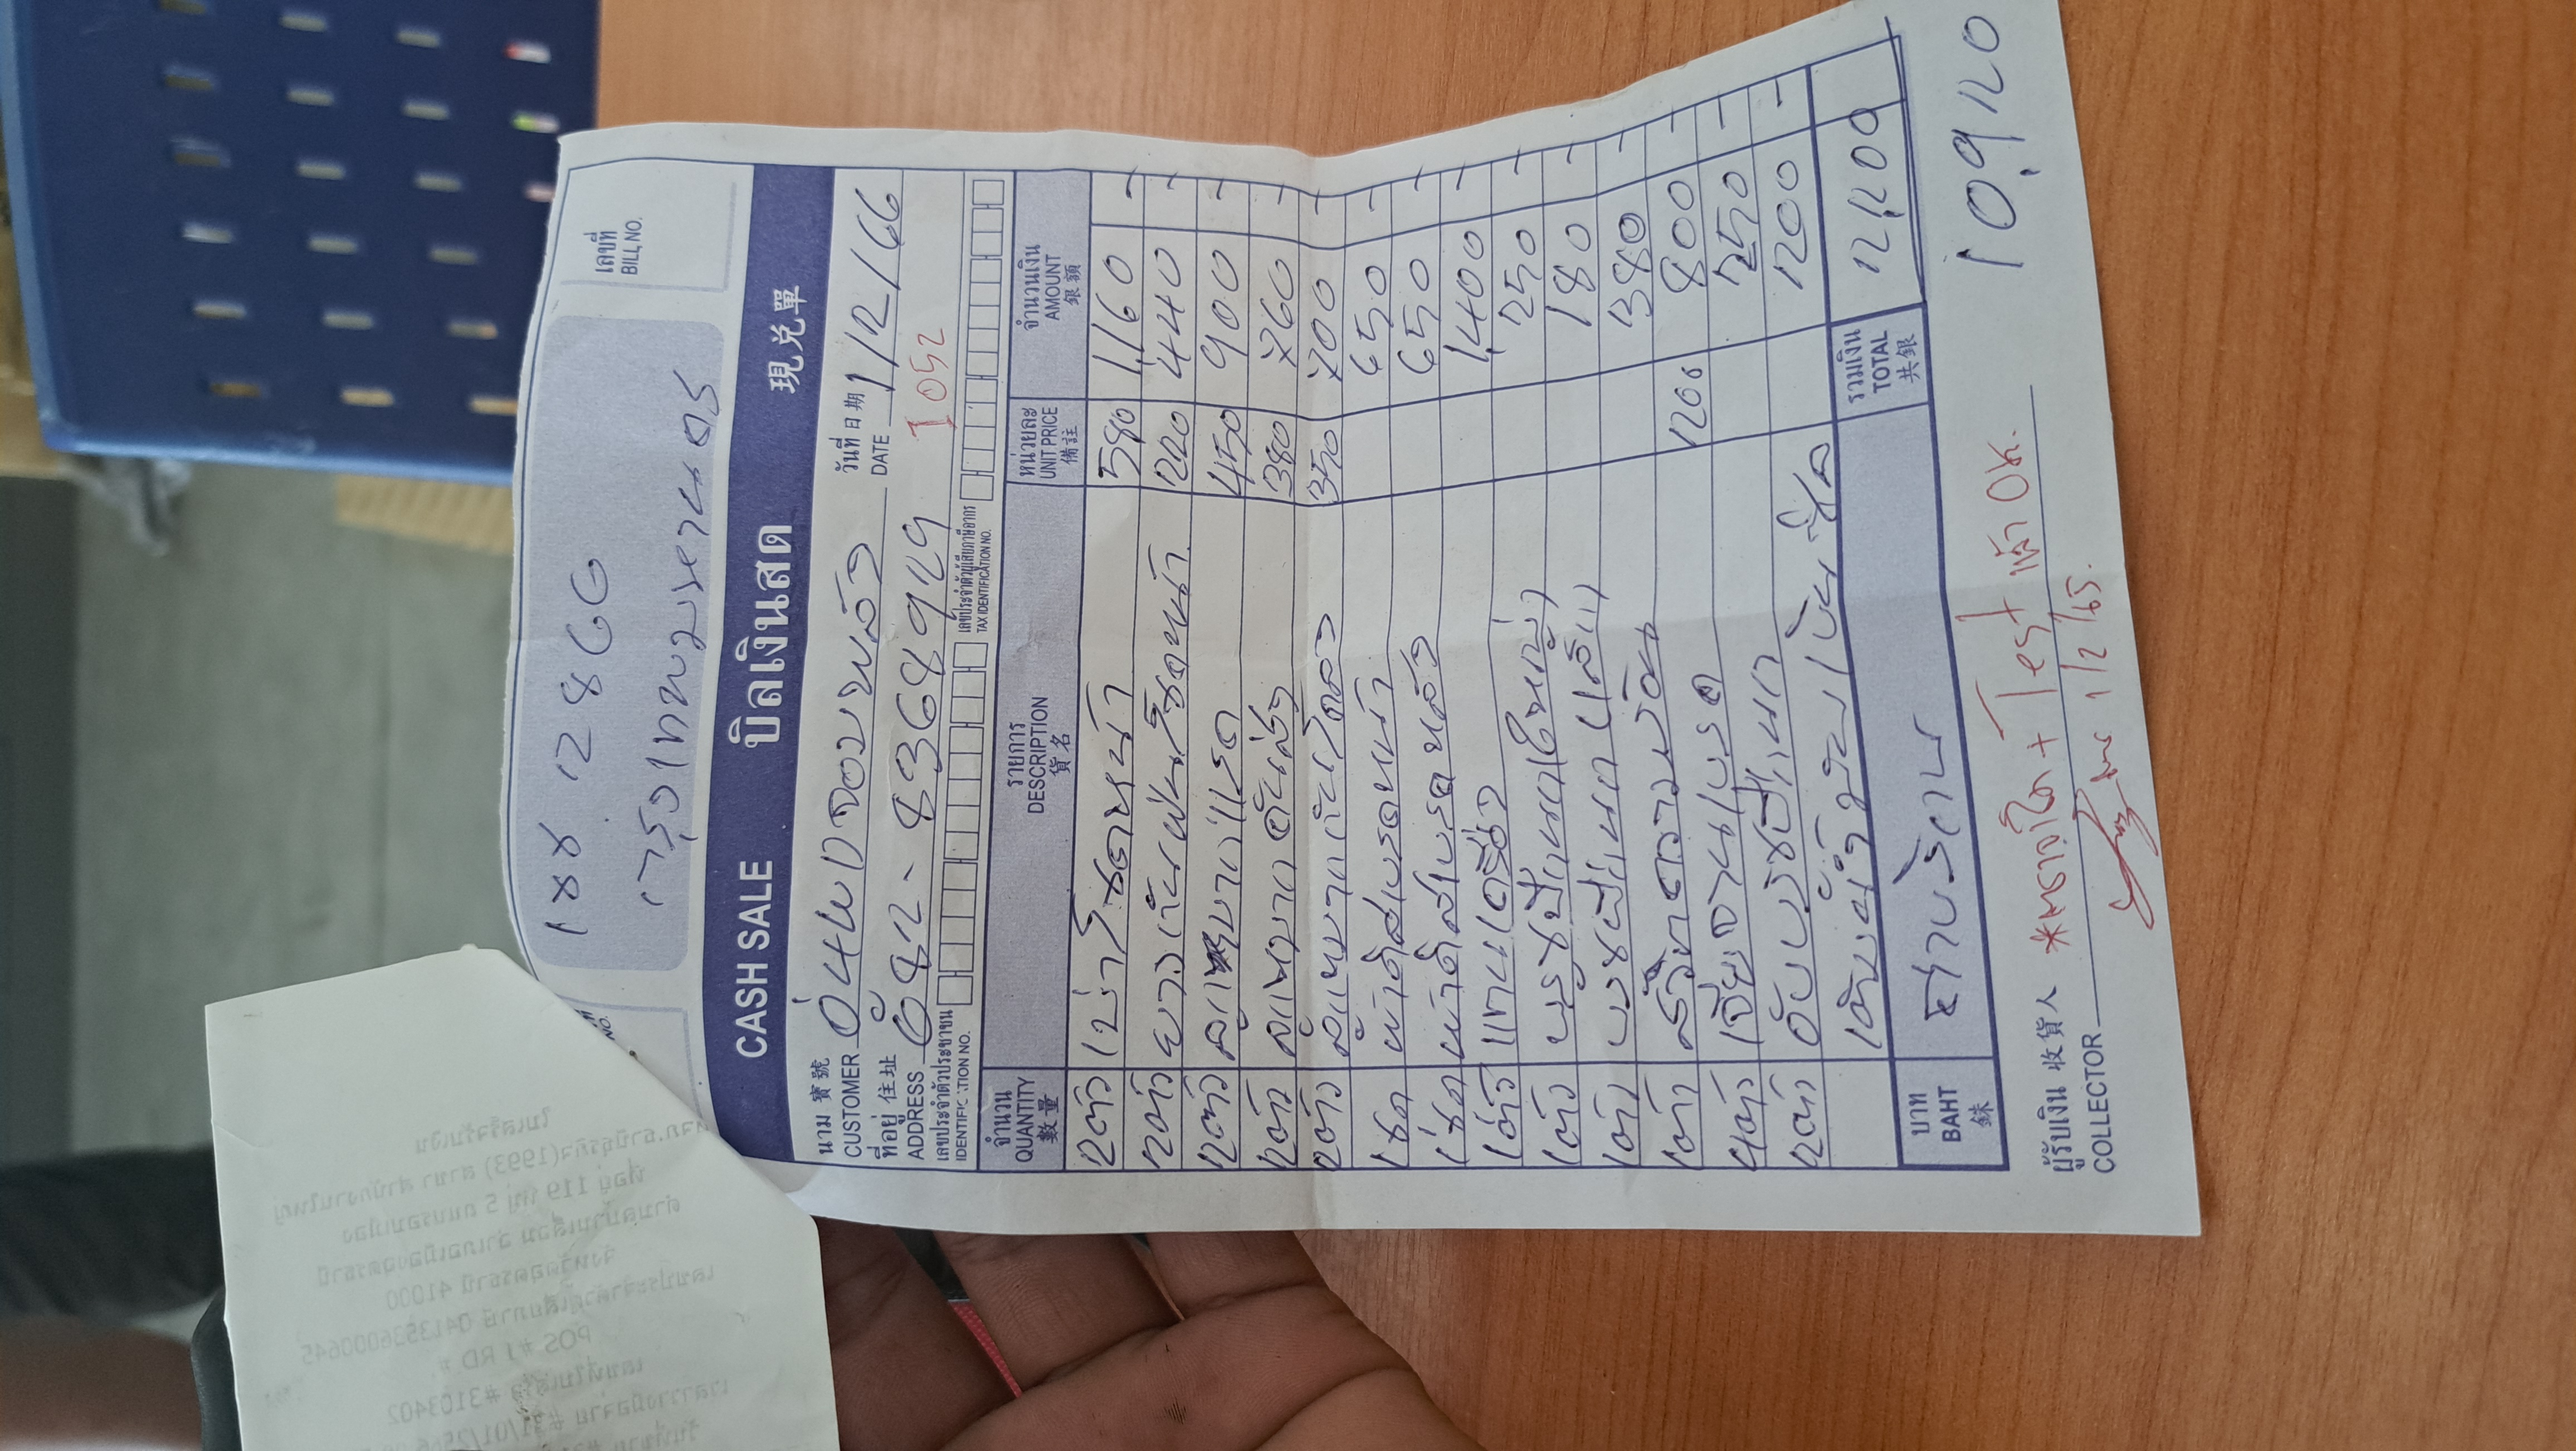 1ฆฆ 1286G
กรุงเทพมหานคร
เลขที่
BILL NO.
NO.
CASH SALE บิลเงินสด 現兌單
นาม 寳號
CUSTOMER
วันที่ 日期
DATE 1/2/66
ที่อยู่ 住址
ADDRESS 082-8368929
I052
เลขประจำตัวประชาชน
IDENTIFICATION NO.
เลขประจำตัวผู้เสียภาษีอากร
TAX IDENTIFICATION NO.
จำนวน QUANTITY 數量 รายการ DESCRIPTION 貨名 หน่วยละ UNIT PRICE 備註 จำนวนเงิน AMOUNT 銀額
2ตัว เบ้าโช๊คหน้า 580 1,160 -
2ตัว ยางกันฝุ่นโช๊คหน้า 220 440 -
2ตัว ลูกหมากแร็ค 450 900 -
2ตัว ลูกหมากคันส่ง 380 760 -
2ตัว ลูกหมากกันโคลง 350 700 -
1ชุด ผ้าดิสเบรคหน้า 650 -
1ชุด ผ้าดิสเบรคหลัง 650 -
1ตัว แท่นเครื่อง 1,400 -
1ตัว บูชปีกนก(ใหญ่) 250 -
1ตัว บูชปีกนก(เล็ก) 180 -
1ตัว 380 -
4ตัว เจียจานเบรค 200 800 -
2ตัว อัดบูชปีกนก 250 -
200 -
บาท
BAHT
銖
รวมเงิน
TOTAL
共銀
12,100
10,920
ผู้รับเงิน 收貨人
COLLECTOR
Test แล้ว OK.
1/2/65.
ใบเสร็จรับเงิน
ที่อยู่ 119 หมู่ 5 ถนนรอบเมือง
จังหวัดอุดรธานี 41000
POS #1 RD #